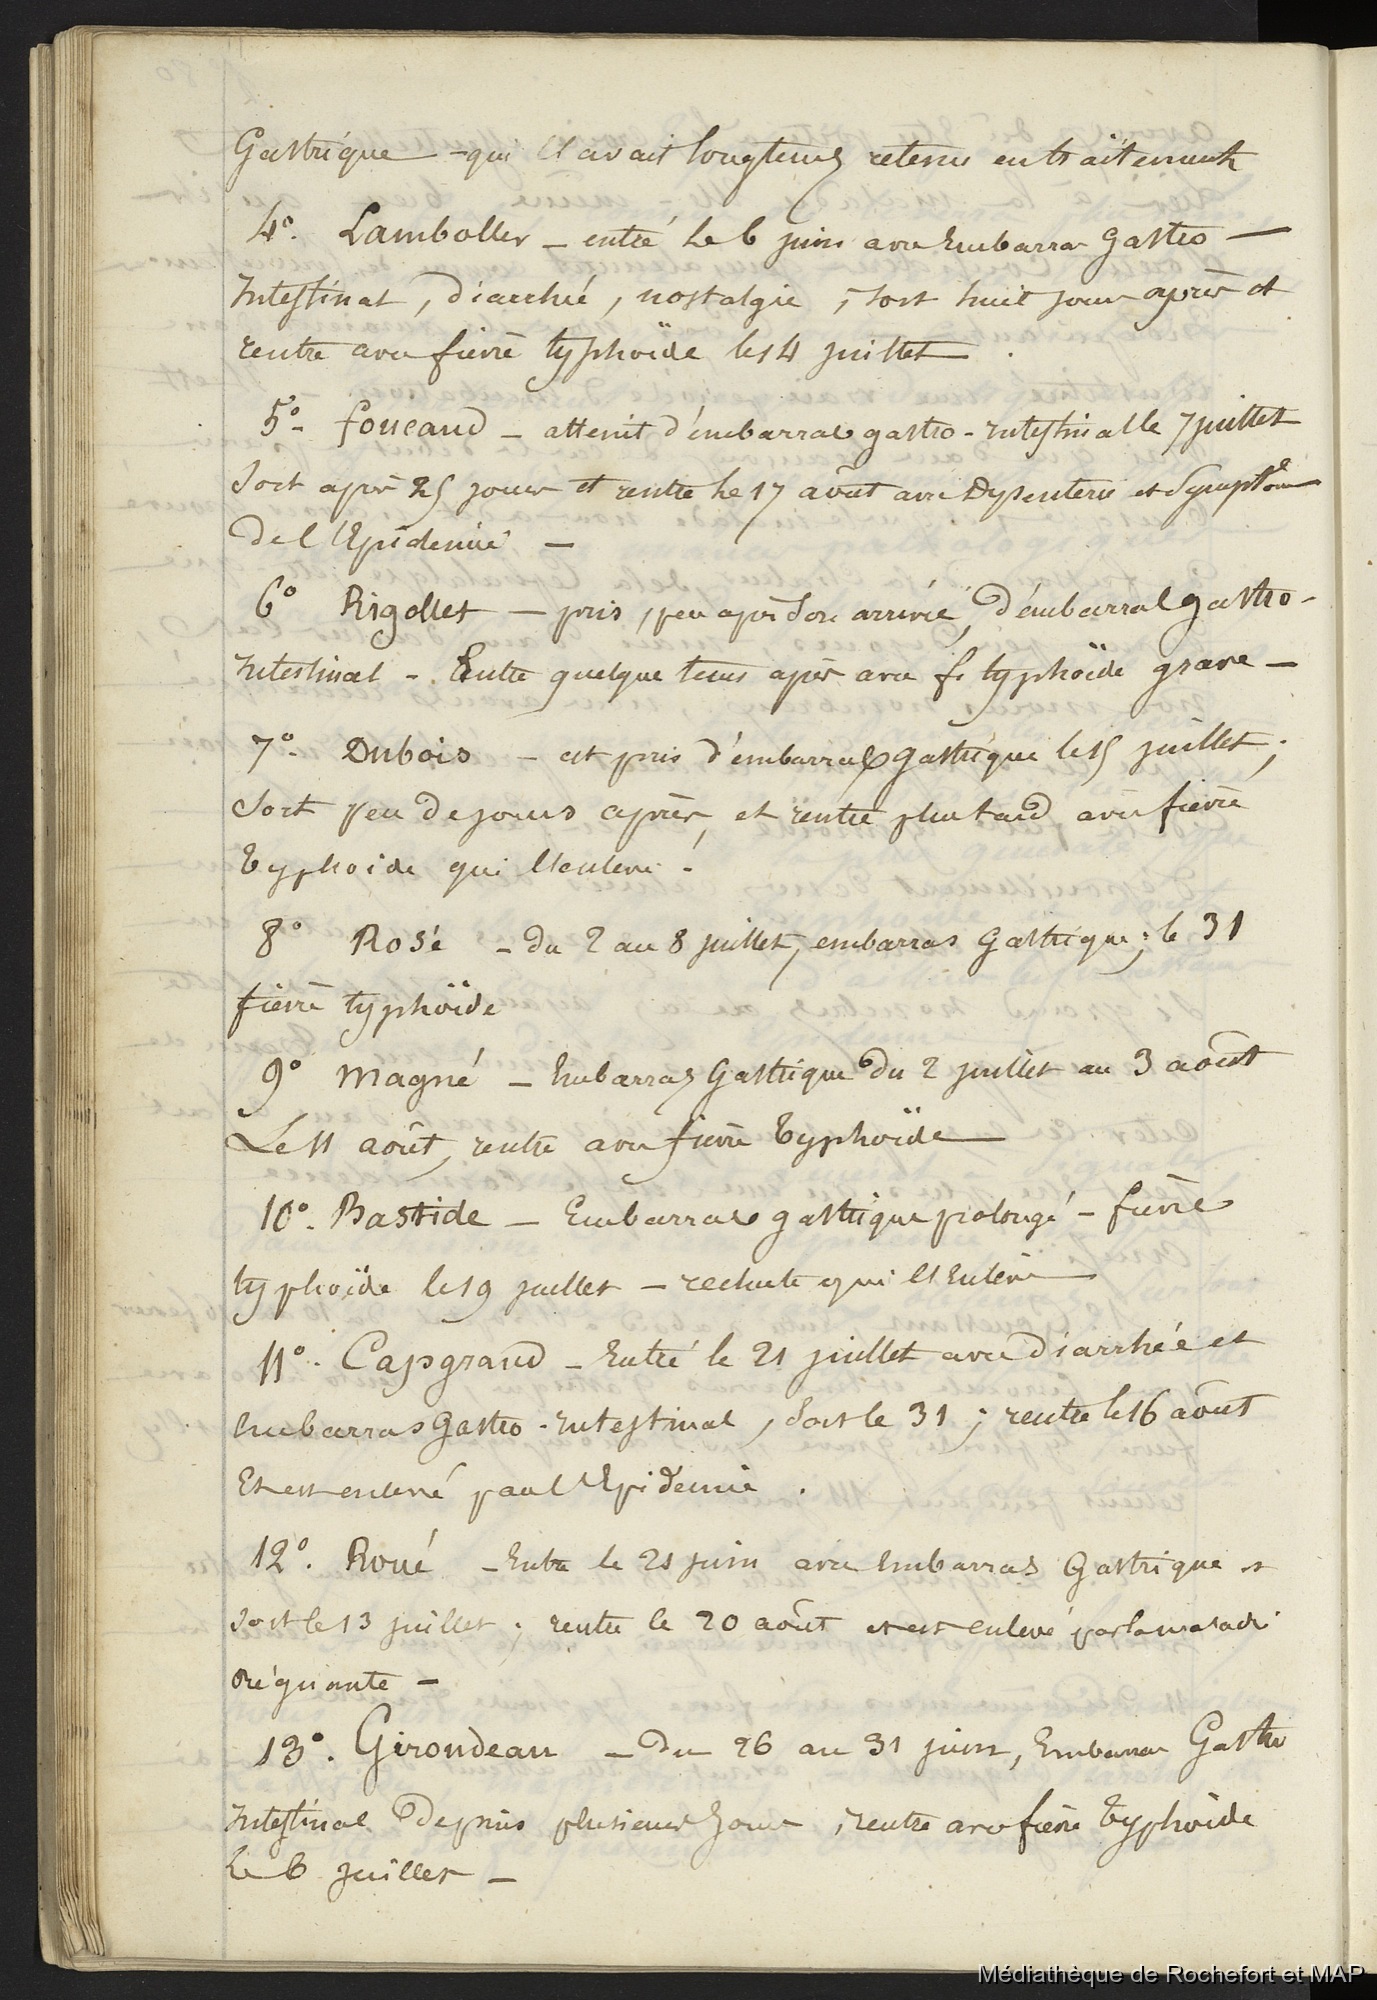 Gastrique – qui l'avait longtems retenu en traitement
4°. Lamboller – entré le 6 juin avec Embarras Gastro –
Intestinal, diarrhée, nostalgie ; sort huit jours après et
rentre avec fièvre typhoïde le 14 juillet.
5°. foucaud – atteint d'embarras gastro-intestinal le 7 juillet
sort après 25 jours et rentre le 17 août avec Dysenterie et Symptômes
de l'Epidemie –
6° Rigollet – pris, peu après son arrivée, d'embarras gastro-
intestinal – Entre quelque tems après avec f. typhoïde grave –
7°. Dubois – est pris d'embarras gastrique le 15 juillet ;
sort peu de jours après, et rentre plus tard avec fièvre
typhoïde qui l'enlève.
8° Rosé – du 2 au 8 juillet, embarras gastrique ; le 31
fièvre typhoïde
9° Magné – Embarras Gastrique du 2 juillet au 3 août
Le 11 août, rentre avec fièvre typhoïde –
10°. Bastide – Embarras gastrique prolongé – fièvre
typhoïde le 19 juillet – rechute qui l'Enlève –
11°. Capgrand – Entré le 21 juillet avec Diarrhée et
Embarras Gastro-intestinal, sort le 31 ; rentre le 16 août
Et est enlevé par l'Epidemie.
12°. Roué – Entre le 21 juin avec Embarras Gastrique et
sort le 13 juillet ; rentre le 20 août et est enlevé par la maladie
régnante –
13°. Girondeau – Du 26 au 31 juin, Embarras Gastro
intestinal depuis plusieurs jours, rentre avec fièvre typhoïde
le 6 juillet –
Médiathèque de Rochefort et MAP